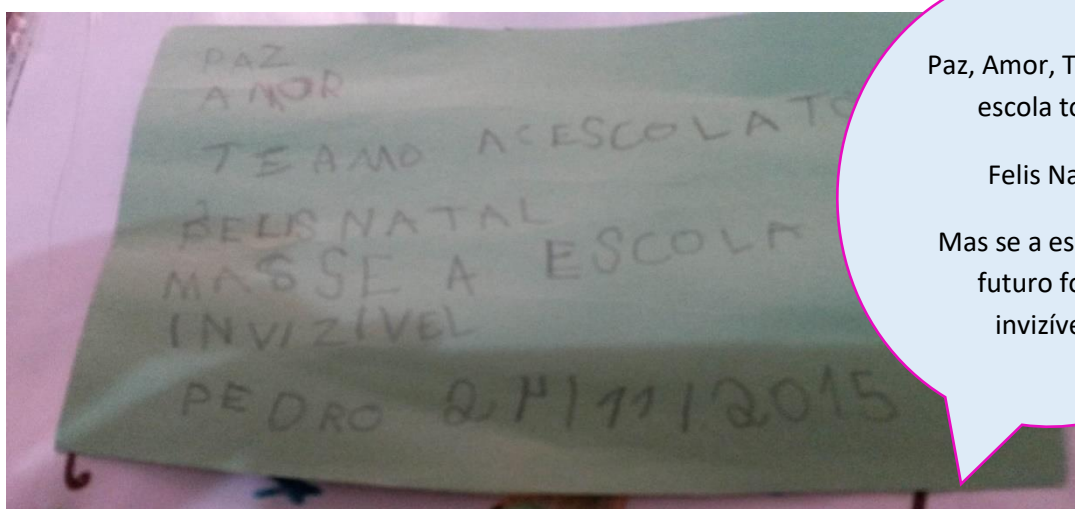 PAZ
AMOR
TE AMO A ESCOLA TO
FELIS NATAL
MAS SE A ESCOLA
INVIZÍVEL
PEDRO 24/11/2015
Paz, Amor, T
escola to
Felis Na
Mas se a es
futuro fo
invizíve